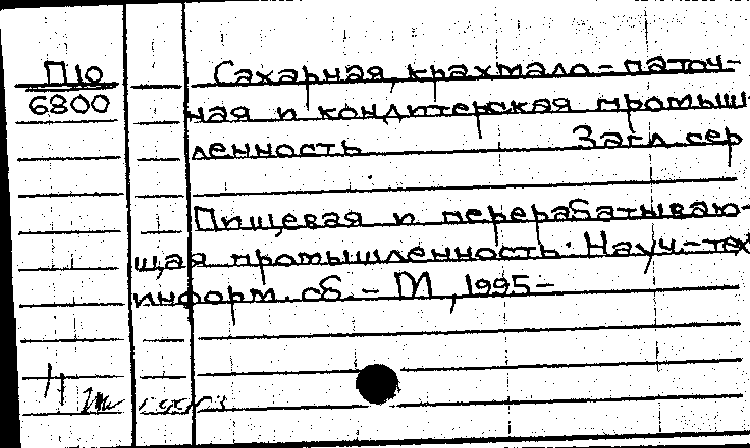 П10
6800
Сахарная, крахмало-паточ-
ная и кондитерская промыш-
ленность Загл. сер
Пищевая и перерабатываю-
щая промышленность: Науч.-тех
информ. сб. - М, 1995-